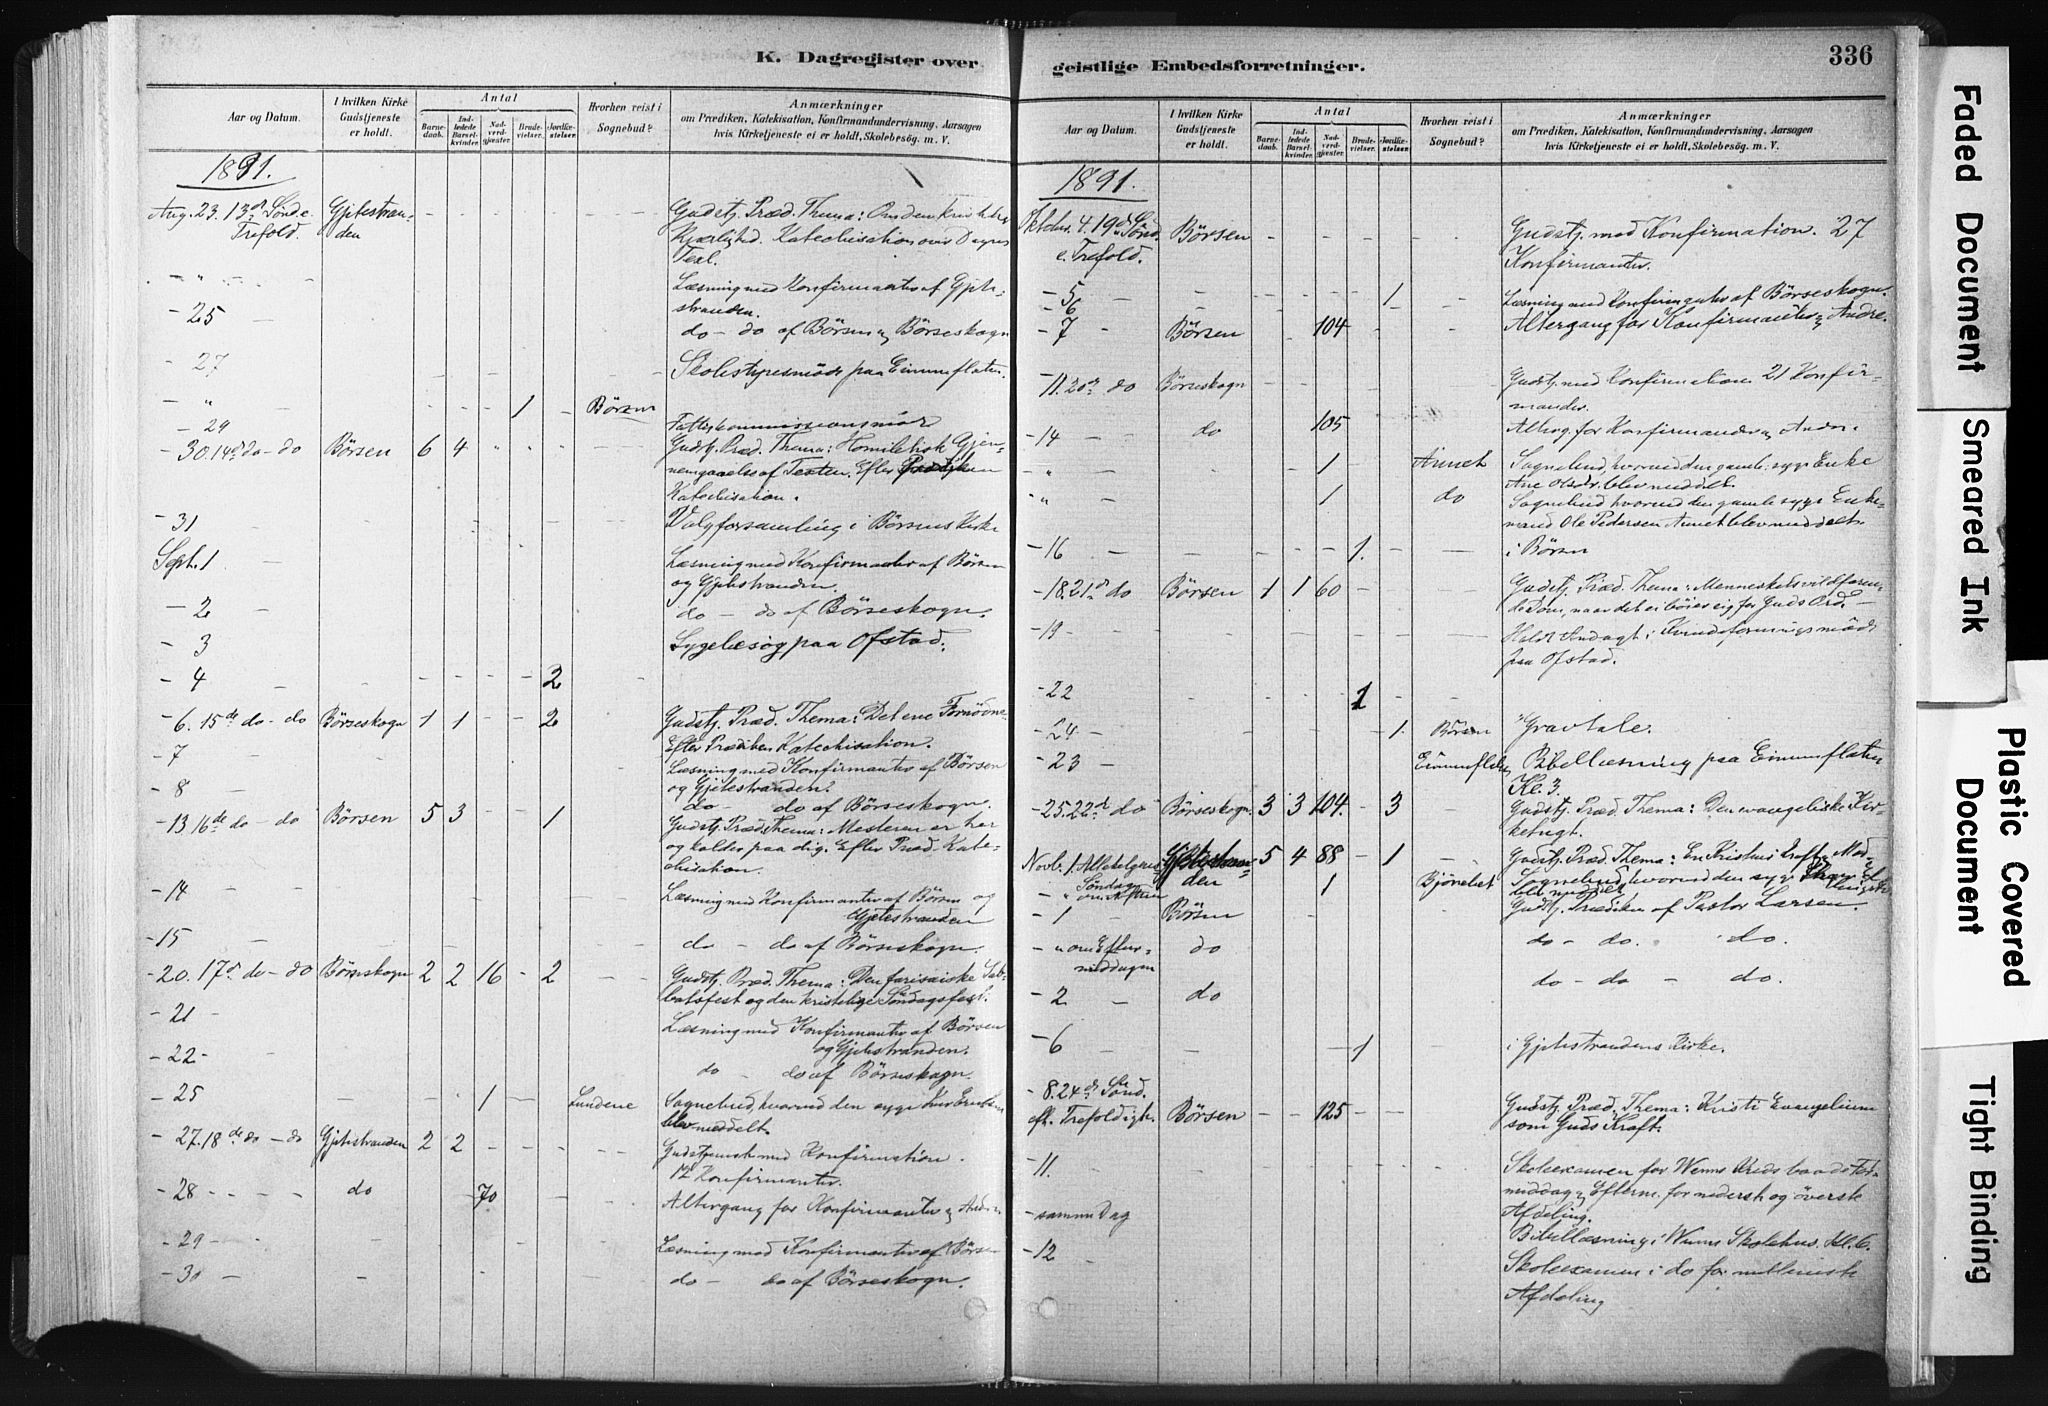 K. Dagregister over
Aar og Datum.
I hvilken Kirke Gudstjeneste er holdt.
Antal
Barnedaab.
Indledede Barselkvinder.
Nadverdgjester.
Brudevielser.
Jordfæstelser.
Hvorhen reist i Sognebud?
Anmærkninger
om Prædiken, Katekisation, Konfirmandundervisning, Aarsagen
hvis Kirketjeneste ei er holdt, Skolebesög. m. V.
1891.
Aug. 23. 13de Sönd. e. Trefold. Gjetestranden - - - - - - Gudstj. Præd. Thema: Om den kristelige
Kjærlighed. Katechisation over Dagens
Text.
- " - Læsning med Konfirmanter af Gjetestranden.
- 25 - do - do af Börsen og Börseskogn
- 27 Skolestyresmöde paa Eimmflaten.
- " - 1 - Börsen
- 29 Fattigkommissionsmöde
- 30. 14de do - do Börsen 6 4 " - - - Gudstj. Præd. Thema: Homiletisk Gjennemgaaelse
af Texten. Efter Prædiken
Katechisation.
- 31 - Valgforsamling i Börsens Kirke
Sept. 1 - Læsning med Konfirmanter af Börsen
og Gjetestranden.
- 2 - do - do af Börseskogn.
- 3 Sygebesög paa Ofstad.
- 4 - 2
- 6. 15de do - do Börseskogn 1 1 - - 2 Gudstj. Præd. Thema: Det ene Fornödne.
Efter Prædiken Katechisation.
- 7 - Læsning med Konfirmanter af Börsen
og Gjetestranden.
- 8 - do - do af Börseskogn.
- 13 16de do - do Börsen 5 3 - - 1 Gudstj. Præd. Thema: Mesteren er her
og kalder paa dig. Efter Præd. Katechisation.
- 14 - Læsning med Konfirmanter af Börsen og
Gjetestranden
- 15 - do - do af Börseskogn.
- 20. 17de do - do Börseskogn 2 2 16 - 2 Gudstj. Præd. Thema: Den farisæiske Sabbatsfest
og den kristelige Söndagsfest.
- 21 - Læsning med Konfirmanter af Börsen
og Gjetestranden.
- 22 - do - do af Börseskogn.
- 25 1 - Lundene Sognebud, hvorved den syge
blev meddelt.
- 27. 18de do - do Gjetestranden 2 2 - - - - Gudstjeneste med Konfirmation.
12 Konfirmanter.
- 28 - - - do 70 Altergang for Konfirmanter og Andre
- 29 - Læsning med Konfirmanter af Börsen
- 30 - do - do af Börseskogn.
geistlige Embedsforretninger.
336
Aar og Datum.
I hvilken Kirke Gudstjeneste er holdt.
Antal
Barnedaab.
Indledede Barselkvinder.
Nadverdgjester.
Brudevielser.
Jordfæstelser.
Hvorhen reist i Sognebud?
Anmærkninger
om Prædiken, Katekisation, Konfirmandundervisning, Aarsagen
hvis Kirketjeneste ei er holdt, Skolebesög. m. V.
1891.
Oktober 4. 19de Sönd. e. Trefold. Börsen - - - - - - Gudstj. med Konfirmation. 27
Konfirmanter.
- 5 - 1 - Læsning med Konfirmanter af Börseskogn.
- 6
- 7 - Börsen 104 - - Altergang for Konfirmanter og Andre.
- 11. 20de do Börseskogn - - Gudstj. med Konfirmation 21 Konfirmander.
- 14 - do 105 - - Alterg. for Konfirmander og Andre.
- " - 1 Annet Sognebud, hvorved den gamle, syge Enke
Ane Olsdr. blev meddelt.
- " - 1 do Sognebud hvorved den gamle syge Enkemand
Ole Pedersen Annet blev meddelt.
- 16 - 1. - - i Börsen
- 18. 21de do Börsen 1 1 60 - - - Gudstj. Præd. Thema: Menneskets vildfarende
Dom, naar det ei böier sig for Guds Ord.
- 19 - Holdt Andagt i Kvindeforeningsmöde
paa Ofstad.
- 22 1
- 24 - 1. Börsen Gravtale.
- 23 - Eimmflaten Bibellæsning paa Eimmflaten
Kl. 3.
- 25. 22de do Börseskogn 3 3 104. - 3 - Gudstj. Præd. Thema: Den evangeliske Kirketugt.
Novb. 1. Allehelgens Söndag Gjetestranden 5 4 88 - 1 - Gudstj. Præd. Thema:
- " om Aftenen 1 Sognebud, hvorved den syge
blev meddelt
- 1 - Börsen Gudstj. Prædiken af Pastor Larsen.
- " om Eftermiddagen do do - do. do.
- 2 - do do - do - do.
- 6 - 1 - i Gjetestrandens Kirke.
- 8. 24de Sönd.
eft. Trefoldigh. Börsen - - 125 - - - Gudstj. Præd. Thema: Kristi Evangelium
som Guds Kraft.
- 11. - Skoleexamen for Wenns Kreds baade Formiddag
og Efterm. for nederste og överste
Afdeling.
- samme Dag Bibellæsning i Wenns Skolehus. Kl. 6.
- 12 - Skoleexamen i do for mellemste
Afdeling
Faded Document
Smeared Ink
Plastic Covered Document
Tight Binding